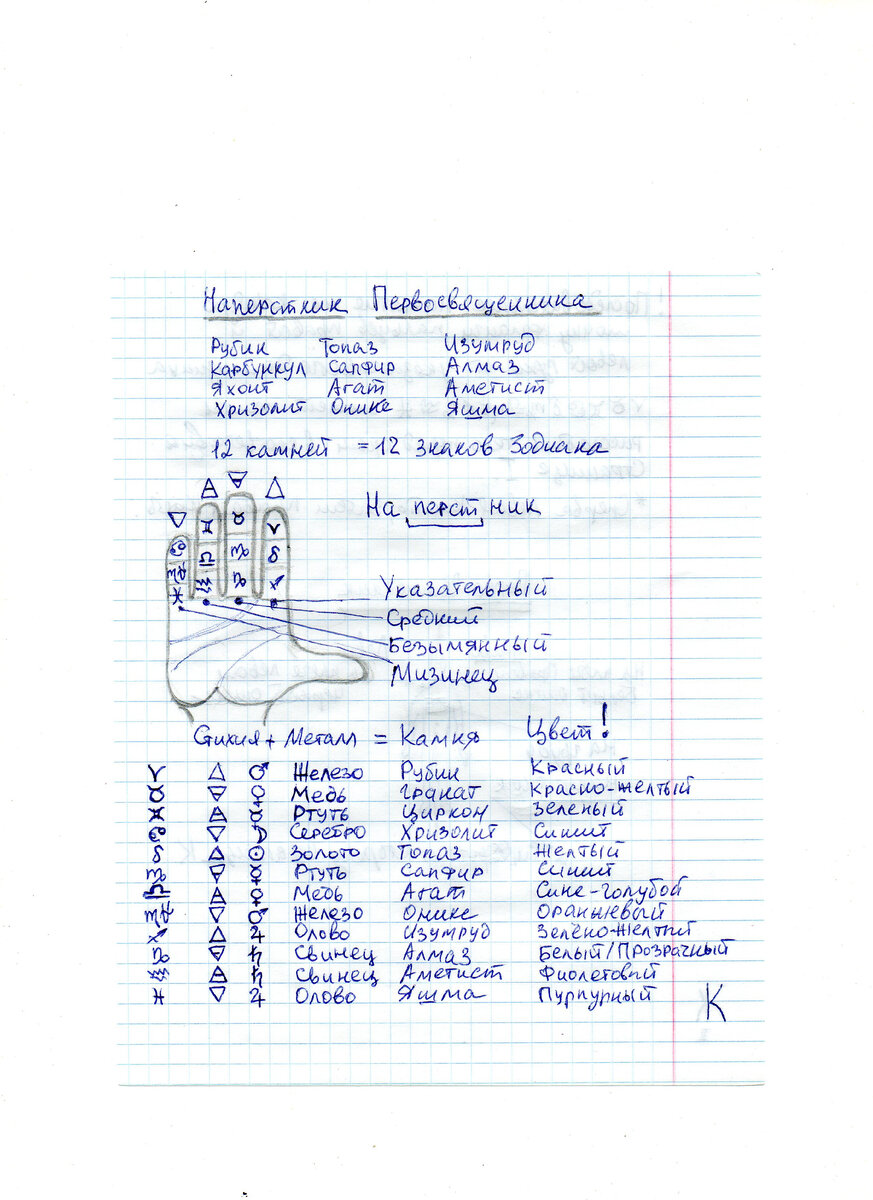 Наперстник Первосвященника
Рубин Топаз Изумруд
Карбункул Сапфир Алмаз
Яхонт Агат Аметист
Хризолит Оникс Яшма
12 камней = 12 Знаков Зодиака
🜄 🜁 🜃 🜂
На перст ник
♋ ♊ ♉ ♈
♏ ♎ ♍ ♌
♓ ♒ ♑ ♐
Указательный
Средний
Безымянный
Мизинец
Стихия + Металл = Камня Цвет!
♈ 🜂 ♂ Железо Рубин Красный
♉ 🜃 ♀ Медь Гранат Красно-желтый
♊ 🜁 ☿ Ртуть Циркон Зеленый
♋ 🜄 ☽ Серебро Хризолит Синий
♌ 🜂 ☉ Золото Топаз Желтый
♍ 🜃 ☿ Ртуть Сапфир Синий
♎ 🜁 ♀ Медь Агат Сине-голубой
♏ 🜄 ♂ Железо Оникс Оранжевый
♐ 🜂 ♃ Олово Изумруд Зелёно-желтый
♑ 🜃 ♄ Свинец Алмаз Белый/Прозрачный
♒ 🜁 ♄ Свинец Аметист Фиолетовый
♓ 🜄 ♃ Олово Яшма Пурпурный
К